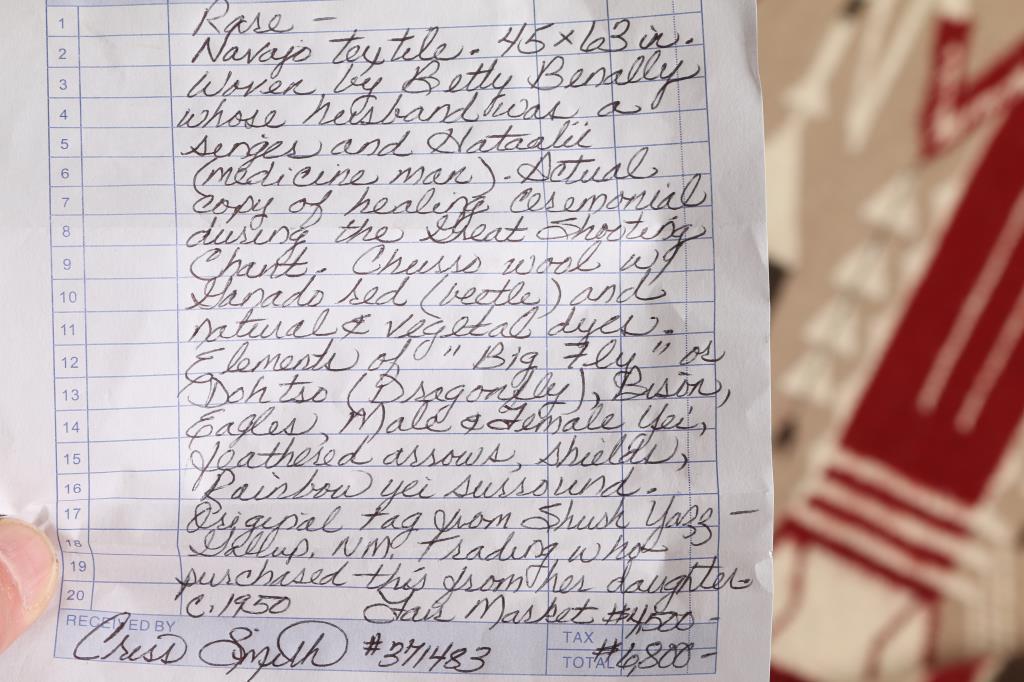 1 Rare -
2 Navajo textile. 45 x 63 in.
3 Woven by Betty Benally
4 whose husband was a
5 singer and Hataalii
6 (medicine man). Actual
7 copy of healing ceremonial
8 during the Great Shooting
9 Chant. Churro wool w/
10 Ganado Red (beetle) and
11 natural & vegetal dyes.
12 Elements of "Big Fly" or
13 Dohtso (Dragonfly), Bison,
14 Eagles, Male & Female Yei,
15 feathered arrows, shields,
16 Rainbow yei surround.
17 Original tag from Shush Yazz -
18 Gallup, NM. Trading who
19 purchased this from her daughter.
20 c. 1950 Fair Market $4,500 -
RECEIVED BY
Chris Smith #371483
TAX
TOTAL $6,800 -